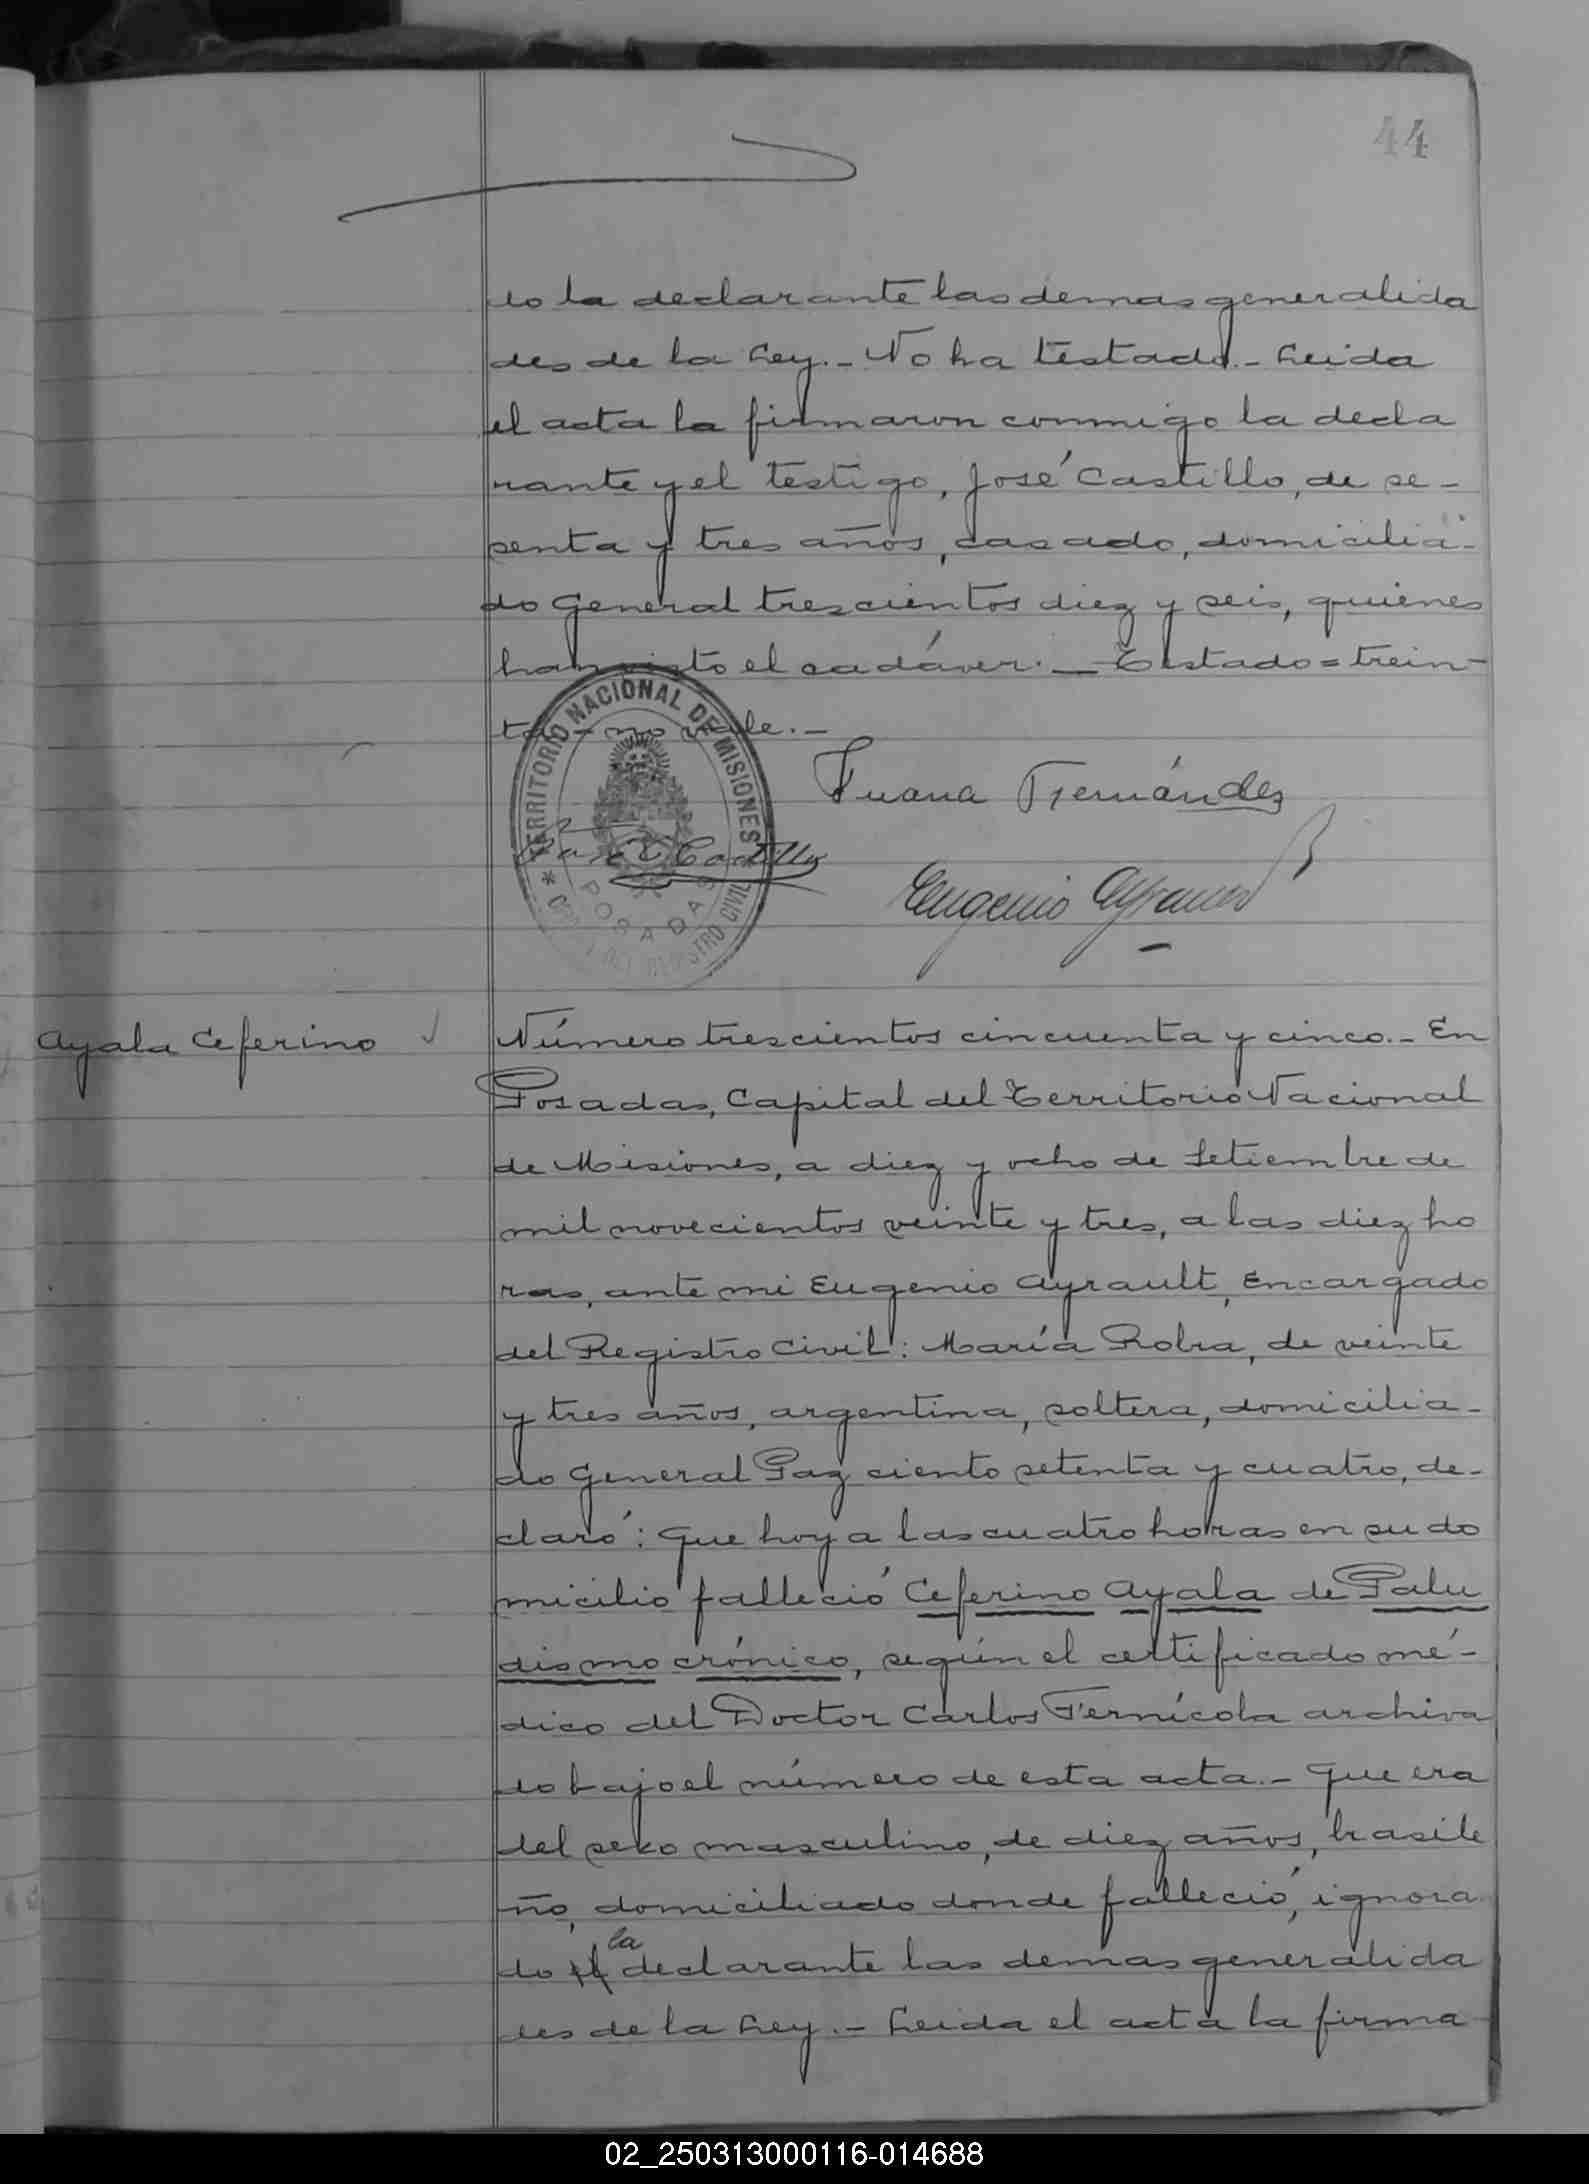 44
do la declarante las demas generalida
des de la Ley.- No ha testado.- Leida
el acta la firmaron conmigo la decla
rante y el testigo, José Castillo, de se-
senta y tres años, casado, domicilia-
do General trescientos diez y seis, quienes
han visto el cadáver.- Testado=trein-
ta - no vale.-
TERRITORIO NACIONAL DE MISIONES
POSADAS
REGISTRO CIVIL
Juana Fernández
José Castillo
Eugenio Ayrault
Ayala Ceferino
Número trescientos cincuenta y cinco.- En
Posadas, Capital del Territorio Nacional
de Misiones, a diez y ocho de Setiembre de
mil novecientos veinte y tres, a las diez ho
ras, ante mi Eugenio Ayrault, Encargado
del Registro Civil: María Robra, de veinte
y tres años, argentina, soltera, domicilia-
do General Paz ciento setenta y cuatro, de-
claró: Que hoy a las cuatro horas en su do
micilio falleció Ceferino Ayala de Palu
dismo crónico, según el certificado mé-
dico del Doctor Carlos Fernícola archiva
do bajo el número de esta acta.- Que era
del sexo masculino, de diez años, brasile
ño, domiciliado donde falleció, ignora
do la declarante las demas generalida
des de la Ley.- Leida el acta la firma
02_250313000116-014688